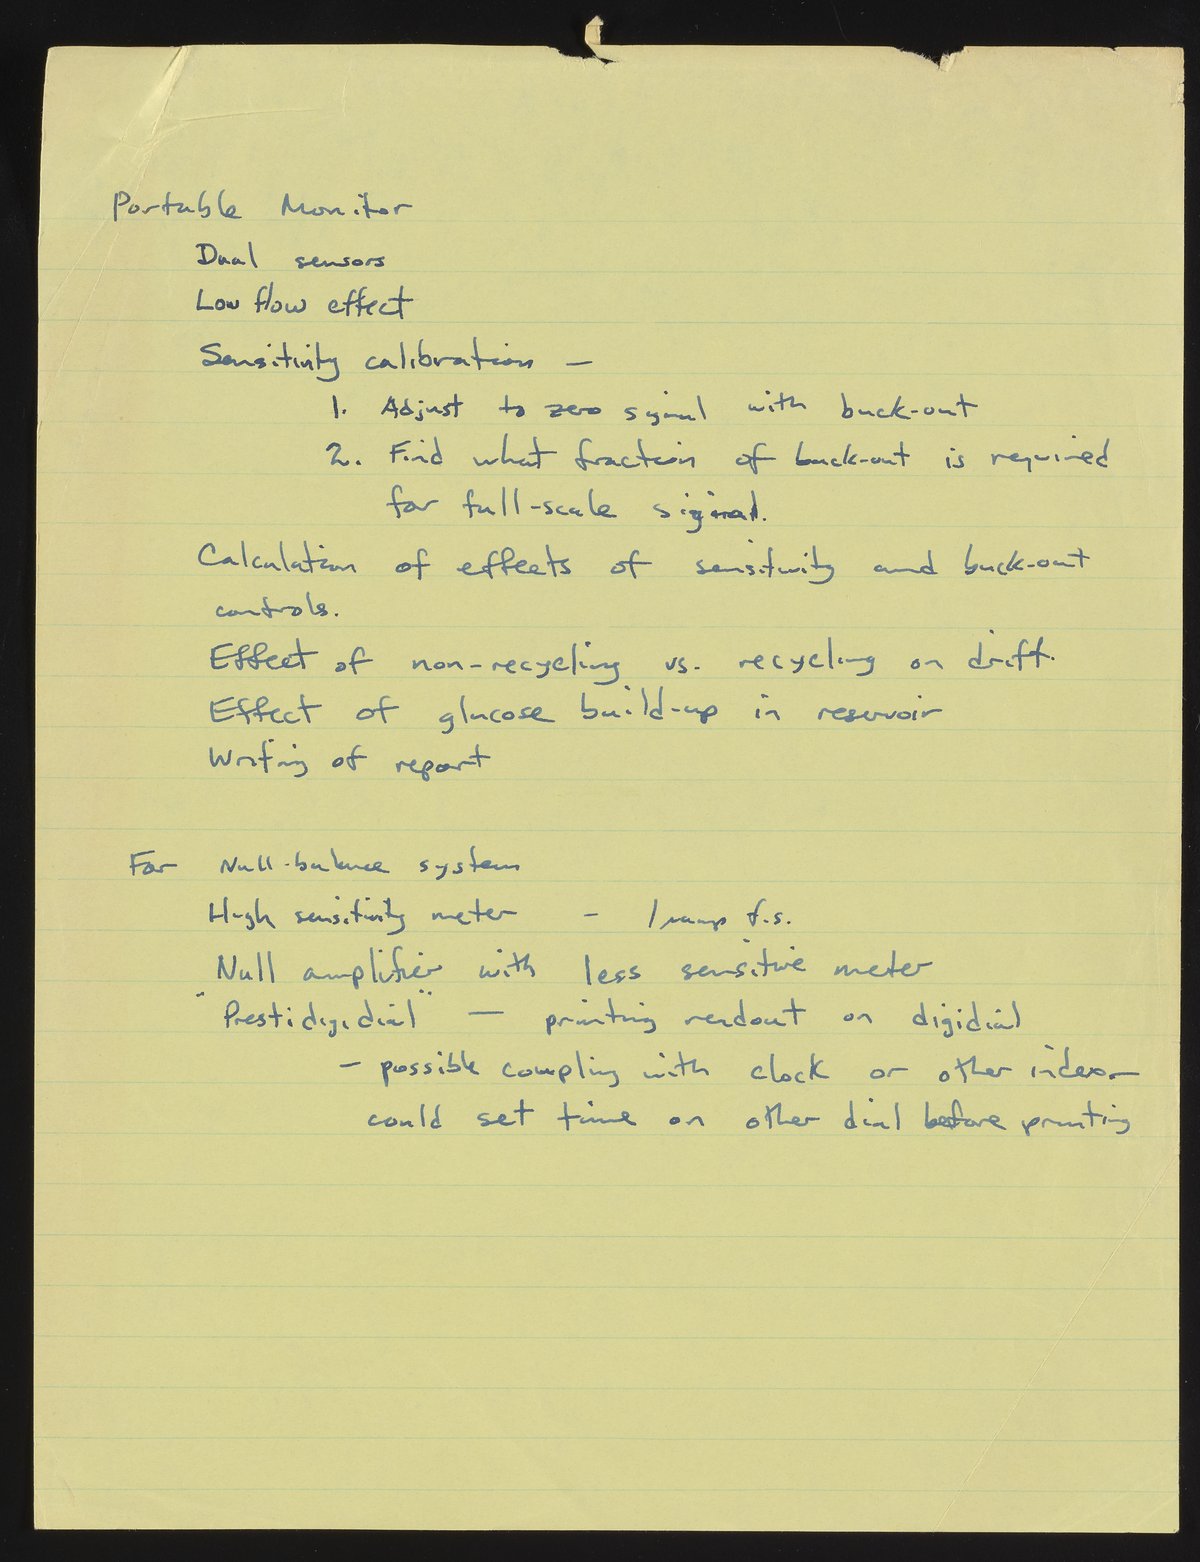 Portable Monitor
Dual sensors
Low flow effect
Sensitivity calibration —
1. Adjust to zero signal with buck-out
2. Find what fraction of buck-out is required
for full-scale signal.
Calculation of effects of sensitivity and buck-out
controls.
Effect of non-recycling vs. recycling on drift.
Effect of glucose build-up in reservoir
Writing of report
For Null-balance system
High sensitivity meter - 1 f.s.
Null amplifier with less sensitive meter
"Prestidigidial" — printing readout on digidial
- possible coupling with clock or other index —
could set time on other dial before printing